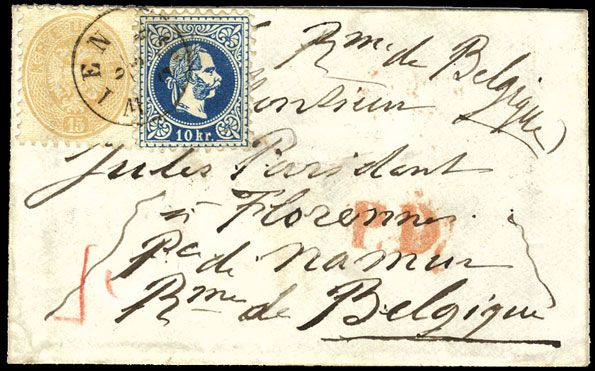 WIEN
15
10 kr.
Rme de Belgique)
Monsieur
Jules Paridant
à Florennes
P.D.
Pce de Namur
Rme de Belgique